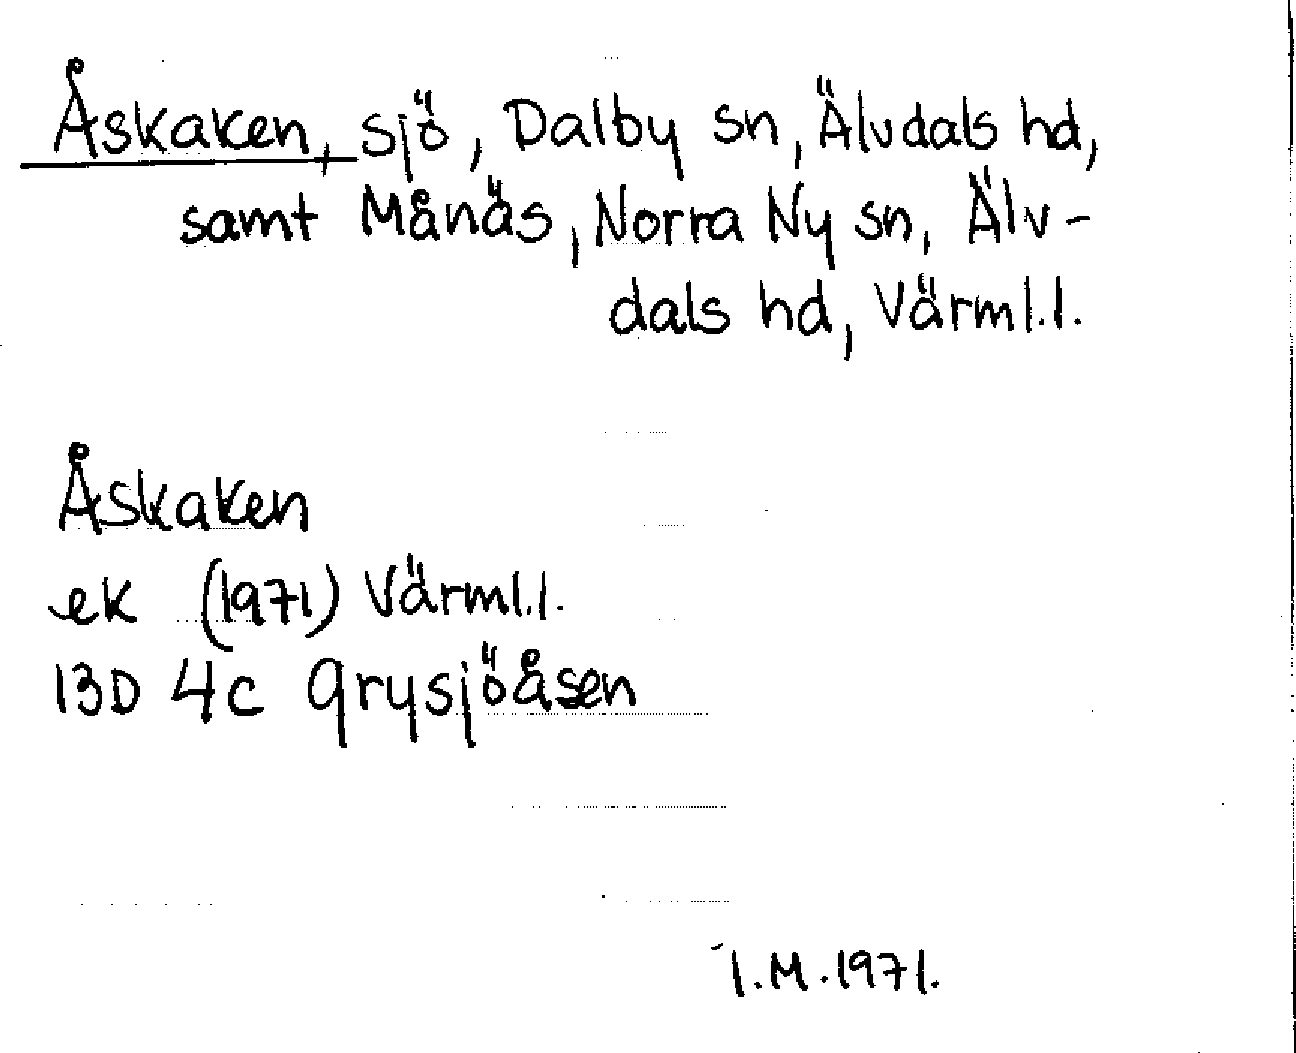 Åskaken, sjö, Dalby sn, Älvdals hd,
samt Månäs, Norra Ny sn, Älv-
dals hd, Värml.l.
Åskaken
ek (1971) Värml.l.
13D 4c Grysjöåsen
I.M.1971.